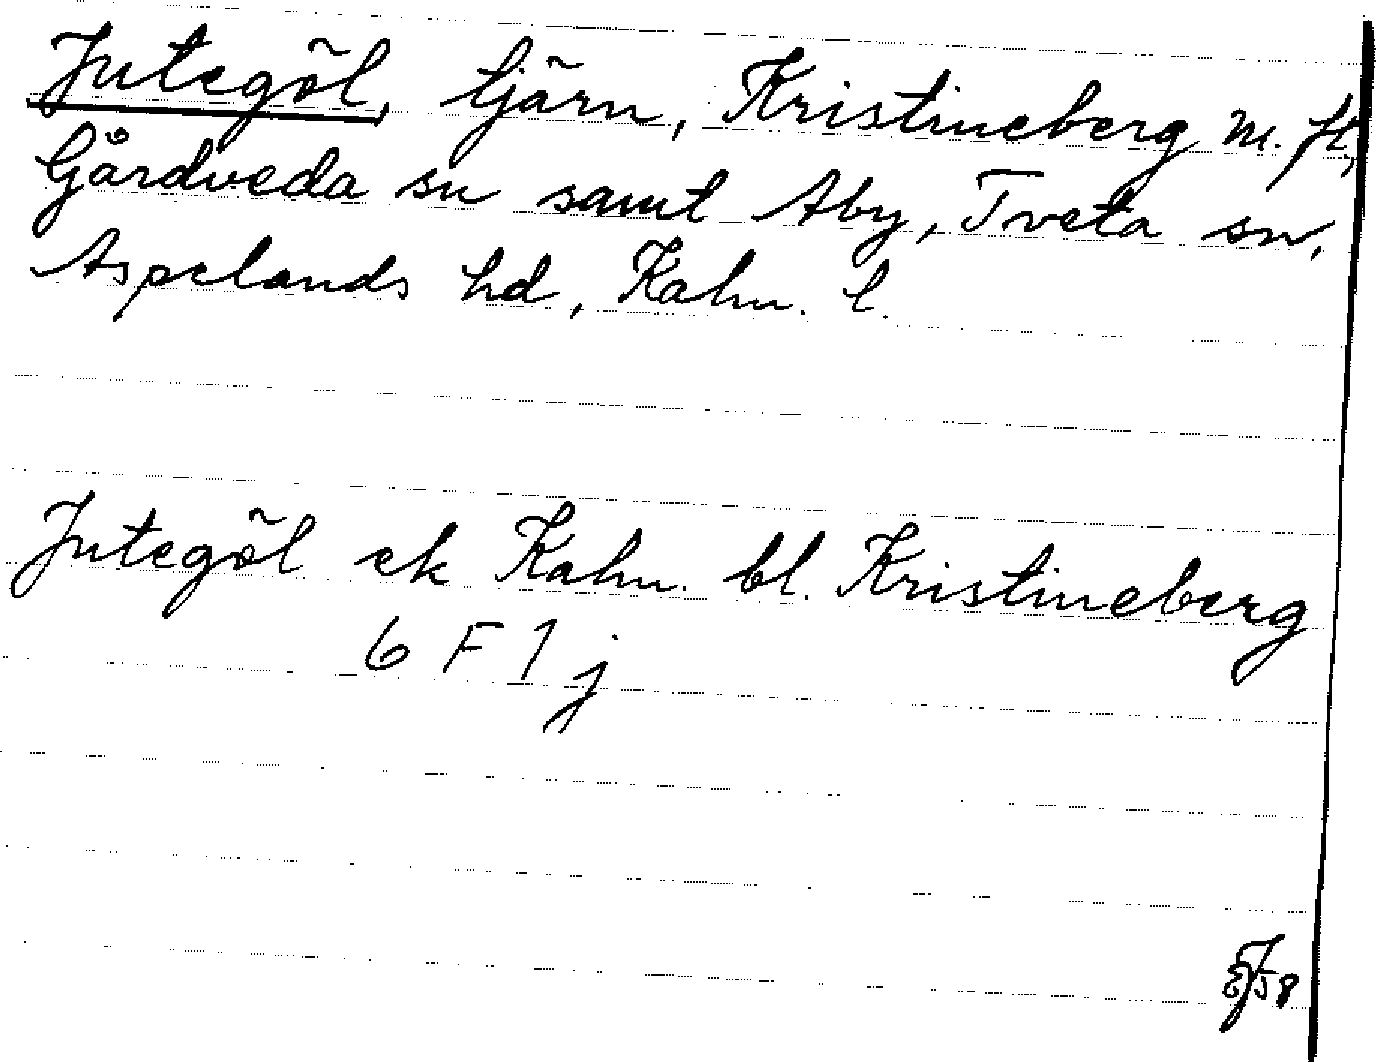 Jutegöl, tjärn, Kristineberg m. fl.,
Gårdveda sn samt Åby, Tveta sn,
Aspelands hd, Kalm. l.
Jutegöl ek Kalm. bl. Kristineberg
6 F 1 j